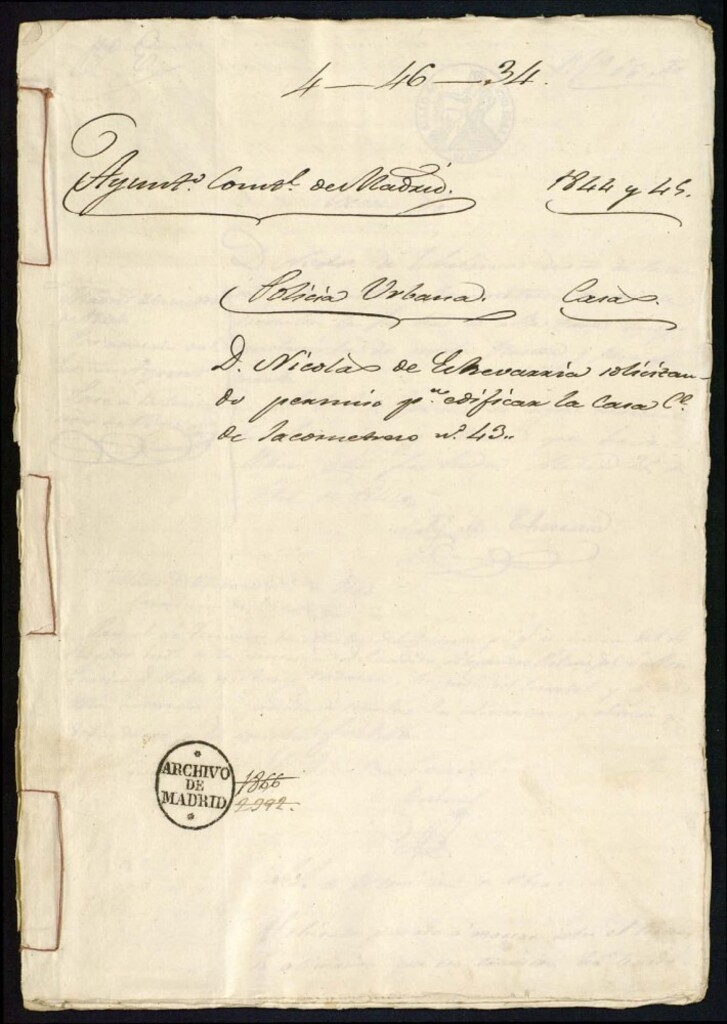 4-46-34.
Ayunt.º Const.l de Madrid. 1844 y 45.
Policia Urbana. Casas.
D. Nicolas de Echevarria solicitan-
do permiso p.ª edificar la Casa C.e
de Jacometrezo n.º 43..
ARCHIVO
DE
MADRID
1866
2992.